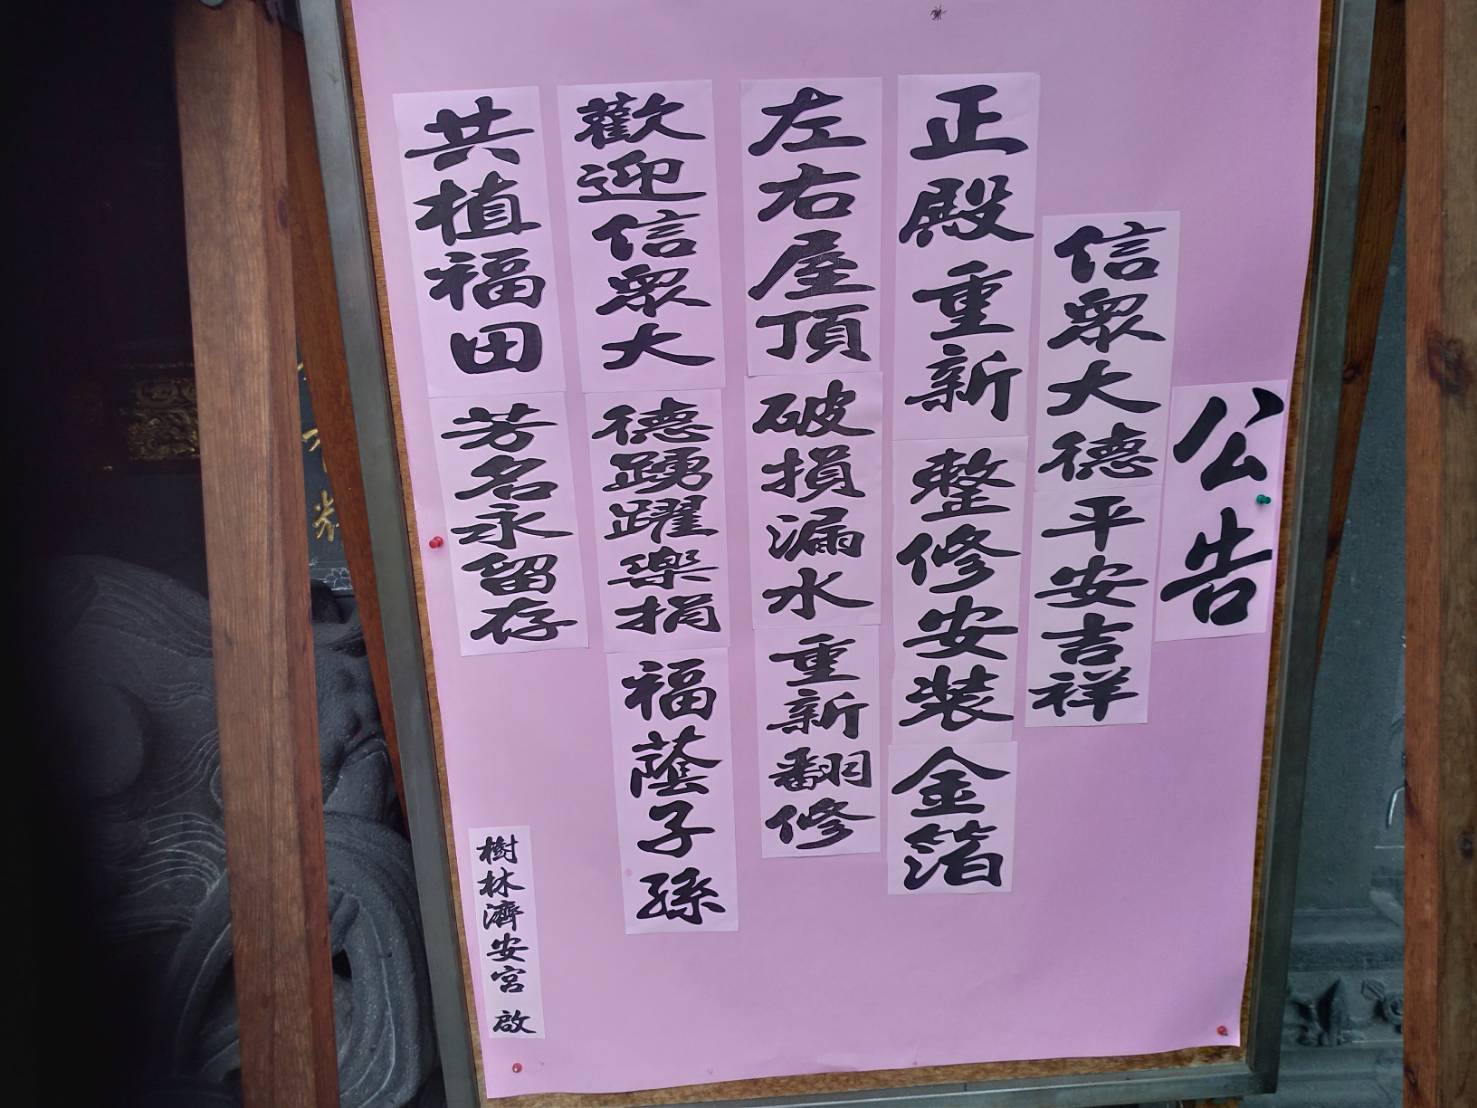 公告
信眾大德平安吉祥
正殿重新整修安裝金箔
左右屋頂破損漏水重新翻修
歡迎信眾大德踴躍樂捐福蔭子孫
共植福田芳名永留存
樹林濟安宮 啟